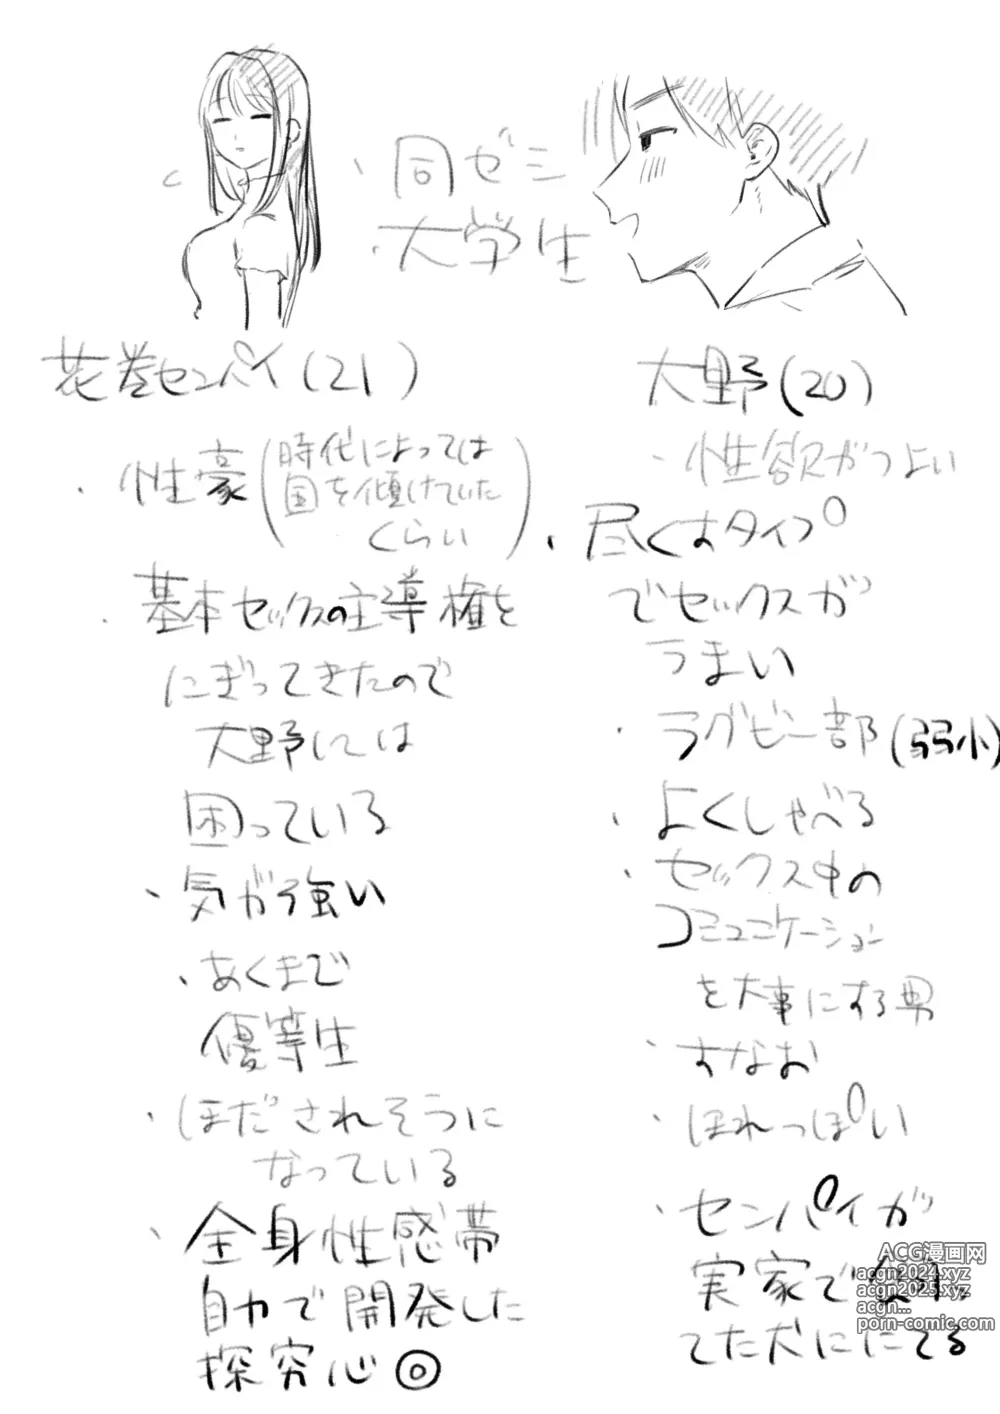 ・同ゼミ
・大学生
花巻センパイ(21)
・性豪(時代によっては
国を傾けていた
くらい)
・基本セックスの主導権を
にぎってきたので
大野には
困っている
・気が強い
・あくまで
優等生
・ほだされそうに
なっている
・全身性感帯
自力で開発した
探究心◎
大野(20)
・性欲がつよい
・尽くすタイプ
でセックスが
うまい
・ラグビー部(弱小)
・よくしゃべる
・セックス中の
コミュニケーション
を大事にする男
・すなお
・ほれっぽい
・センパイが
実家で
てた犬ににてる
ACG漫画网
acgn2024.xyz
acgn2025.xyz
acgn...
porn-comic.com